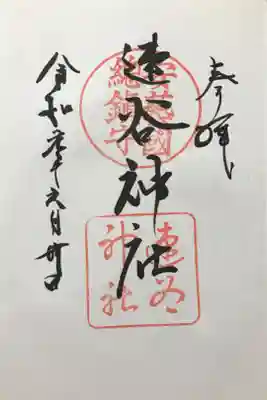 奉拝
安藝國
総鎮守
速谷神社
速谷
神社
令和元年六月日